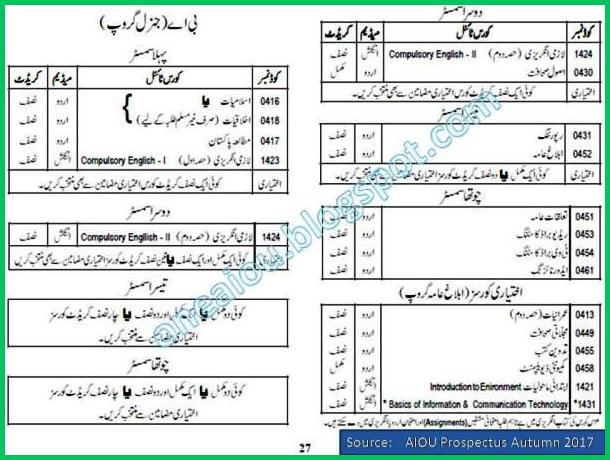 دوسرا سمسٹر
کوڈ نمبر کورس ٹائٹل میڈیم کریڈٹ
1424 لازمی انگریزی (حصہ دوم) Compulsory English - II انگلش نصف
0430 اصول صحافت اردو مکمل
اختیاری کوئی ایک نصف کریڈٹ کورس اختیاری مضامین سے بھی منتخب کریں۔
تیسرا سمسٹر
0431 رپورٹنگ اردو نصف
0452 ابلاغ عامہ اردو نصف
اختیاری کوئی ایک مکمل یا دو نصف کریڈٹ کورسز اختیاری مضامین سے بھی منتخب کریں۔
چوتھا سمسٹر
0451 تعلقات عامہ اردو نصف
0453 ریڈیو براڈ کاسٹنگ اردو نصف
0454 ٹی وی براڈ کاسٹنگ اردو نصف
0461 ایڈورٹائزنگ اردو نصف
اختیاری کورسز (ابلاغ عامہ گروپ)
0413 عمرانیات (حصہ دوم) اردو نصف
0449 مجلاتی صحافت اردو نصف
0455 تدوین کتب اردو نصف
0458 کمیونٹی ڈیویلپمنٹ اردو مکمل
1421 ابتدائی ماحولیات Introduction to Enironment انگلش نصف
*1431 Basics of Information & Communication Technology * انگلش نصف
بی اے (جنرل گروپ)
پہلا سمسٹر
کوڈ نمبر کورس ٹائٹل میڈیم کریڈٹ
0416 اسلامیات یا اردو نصف
0418 اخلاقیات (صرف غیر مسلم طلبہ کے لیے) اردو نصف
0417 مطالعہ پاکستان اردو نصف
1423 لازمی انگریزی (حصہ اول) Compulsory English - I انگلش نصف
اختیاری کوئی ایک نصف کریڈٹ کورس اختیاری مضامین سے بھی منتخب کریں۔
دوسرا سمسٹر
1424 لازمی انگریزی (حصہ دوم) Compulsory Engllish - II انگلش نصف
اختیاری کوئی ایک مکمل اور ایک نصف یا تین نصف کریڈٹ کورسز اختیاری مضامین سے بھی منتخب کریں
تیسرا سمسٹر
کوئی دو مکمل یا ایک مکمل اور دو نصف یا چار نصف کریڈٹ کورسز
اختیاری مضامین سے منتخب کریں۔
چوتھا سمسٹر
کوئی دو مکمل یا ایک مکمل اور دو نصف یا چار نصف کریڈٹ کورسز
اختیاری مضامین سے منتخب کریں۔
27
Source: AIOU Prospectus Autumn 2017
oneaiou.blogspot.com